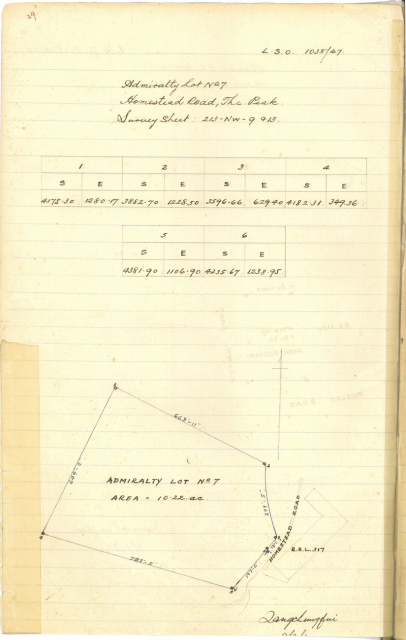 29
L. S. O. 1035/47
Admiralty Lot No 7
Homestead Road, The Peak.
Survey Sheet 213-NW-9 & 13
1 2 3 4
S E S E S E S E
4175.30 1280.17 3882.70 1228.50 3596.66 629.40 4182.31 349.36
5 6
S E S E
4381.90 1106.90 4235.67 1238.95
ADMIRALTY LOT No 7
AREA = 10.22 ac.
HOMESTEAD ROAD
R.B.L. 317